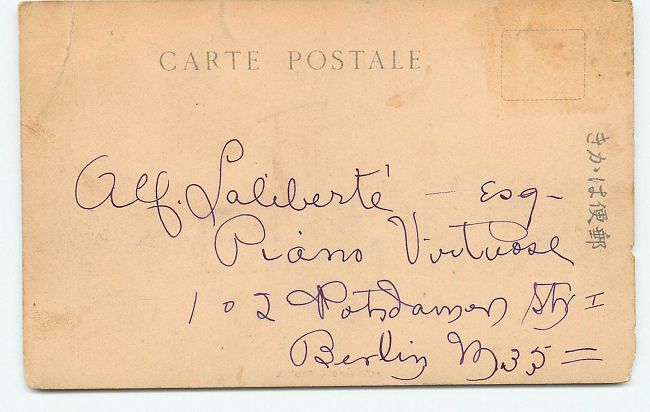 CARTE POSTALE
郵便はかき
Alf. Laliberté – Esq–
Piano Virtuose
102 Potsdamer Str =
Berlin W35 =